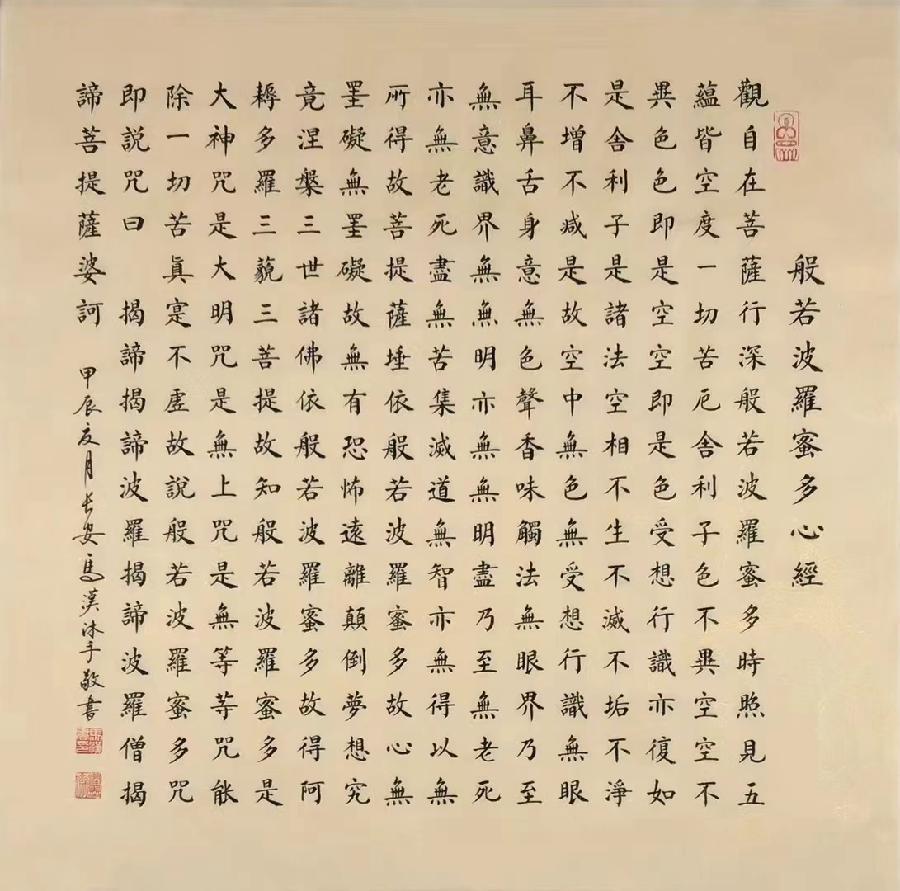 般若波羅蜜多心經
觀自在菩薩行深般若波羅蜜多時照見五
蘊皆空度一切苦厄舍利子色不異空空不
異色色即是空空即是色受想行識亦復如
是舍利子是諸法空相不生不滅不垢不淨
不增不减是故空中無色無受想行識無眼
耳鼻舌身意無色聲香味觸法無眼界乃至
無意識界無無明亦無無明盡乃至無老死
亦無老死盡無苦集滅道無智亦無得以無
所得故菩提薩埵依般若波羅蜜多故心無
罣礙無罣礙故無有恐怖遠離顛倒夢想究
竟涅槃三世諸佛依般若波羅蜜多故得阿
耨多羅三藐三菩提故知般若波羅蜜多是
大神咒是大明咒是無上咒是無等等咒能
除一切苦真寔不虛故説般若波羅蜜多咒
即説咒曰 揭諦揭諦波羅揭諦波羅僧揭
諦菩提薩婆訶 甲辰夏月长安馬漢沐手敬書